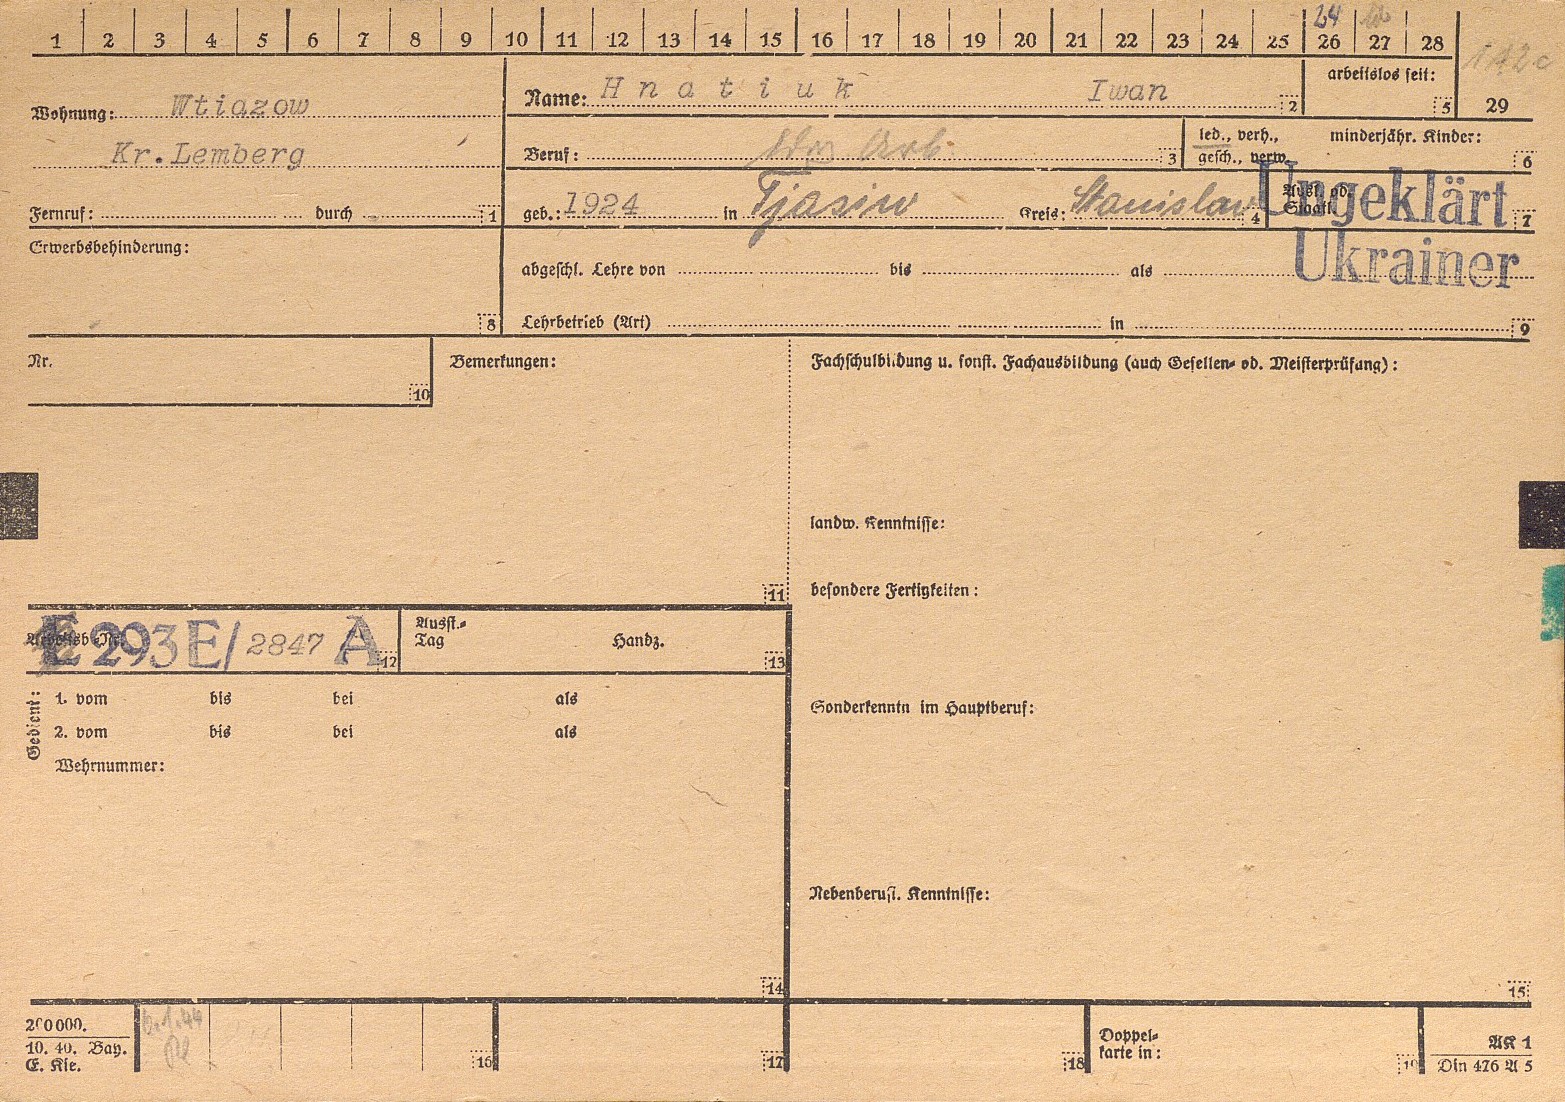 1 2 3 4 5 6 7 8 9 10 11 12 13 14 15 16 17 18 19 20 21 22 23 24 25 26 27 28
24
112c
Wohnung: Wtiazow
Kr. Lemberg
Fernruf: durch 1
Name: Hnatiuk Iwan 2
arbeitslos seit: 5
29
Beruf: Arb. 3
led., verh.,
gesch., verw.
minderjähr. Kinder: 6
geb.: 1924 in Tjasiw Kreis: Stanislau 4
Ausl. od.
Staatl. 7
Ungeklärt
Ukrainer
Erwerbsbehinderung:
8
abgeschl. Lehre von bis als
Lehrbetrieb (Art) in 9
Nr.
10
Bemerkungen:
11
Fachschulbildung u. sonst. Fachausbildung (auch Gesellen- od. Meisterprüfung):
landw. Kenntnisse:
besondere Fertigkeiten:
Sonderkenntn im Hauptberuf:
Nebenberufl. Kenntnisse:
15
Arbeitsb.-Nr.
E 293 E/ 2847 A 12
Ausst.-
Tag
Handz.
13
Gedient:
1. vom bis bei als
2. vom bis bei als
Wehrnummer:
14
200000.
10. 40. Bay.
E. Kie.
6.1.44
16
17
18
Doppel-
karte in:
19
AK 1
Din 476 A 5